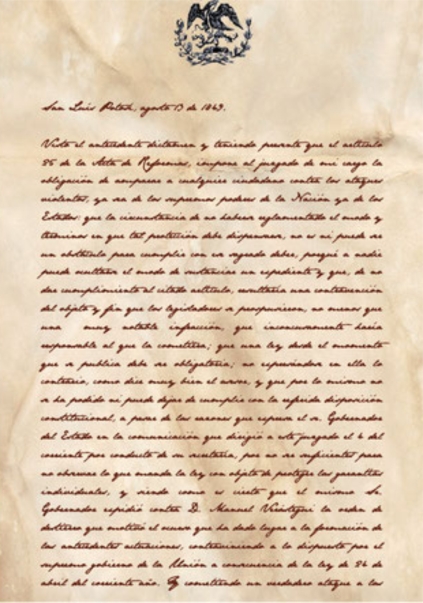 San Luis Potosí, agosto 13 de 1849.
Visto el antecedente dictamen y teniendo presente que el artículo
25 de la Acta de Reformas, impone al juzgado de mi cargo la
obligación de amparar a cualquier ciudadano contra los ataques
violentos, ya sea de los supremos poderes de la Nación ya de los
Estados; que la circunstancia de no haberse reglamentado el modo y
términos en que tal protección debe dispensarse, no es ni puede ser
un obstáculo para cumplir con ese sagrado deber, porque a nadie
puede ocultarse el modo de sustanciar un expediente y que, de no
dar cumplimiento al citado artículo, resultaría una contravención
del objeto y fin que los legisladores se propusieron, no menos que
una muy notable infracción, que inconcusamente haría
responsable al que la cometiera; que una ley desde el momento
que se publica debe ser obligatoria; no expresándose en ella lo
contrario, como dice muy bien el asesor, y que por lo mismo no
se ha podido ni puede dejar de cumplir con la referida disposición
constitucional, a pesar de las razones que expresa el sr. Gobernador
del Estado en la comunicación que dirigió a este juzgado el 4 del
corriente por conducto de su secretaría, por no ser suficientes para
no observar lo que manda la ley con objeto de proteger las garantías
individuales, y siendo como es cierto que el mismo Sr.
Gobernador expidió contra D. Manuel Verástegui la orden de
destierro que motivó el ocurso que ha dado lugar a la formación de
las antecedentes actuaciones, contraviniendo a lo dispuesto por el
supremo gobierno de la Unión a consecuencia de la ley de 24 de
abril del corriente año. Y cometiendo un verdadero ataque a las